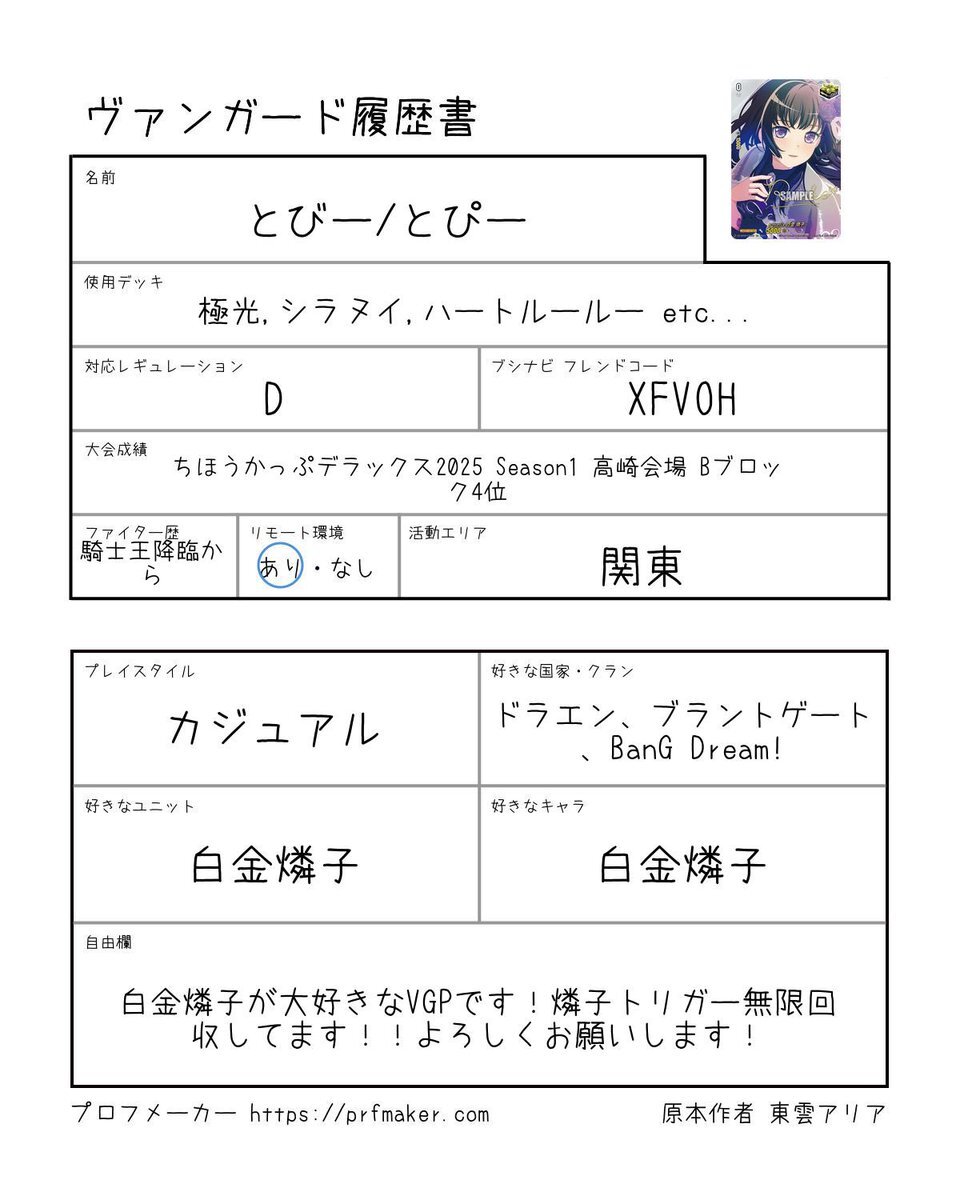 ヴァンガード履歴書
SAMPLE
名前
とびー/とぴー
使用デッキ
極光,シラヌイ,ハートルールー etc...
対応レギュレーション
D
ブシナビ フレンドコード
XFV0H
大会成績
ちほうかっぷデラックス2025 Season1 高崎会場 Bブロッ
ク4位
ファイター歴
騎士王降臨か
ら
リモート環境
あり・なし
活動エリア
関東
プレイスタイル
カジュアル
好きな国家・クラン
ドラエン、ブラントゲート
、BanG Dream!
好きなユニット
白金燐子
好きなキャラ
白金燐子
自由欄
白金燐子が大好きなVGPです!燐子トリガー無限回
収してます!!よろしくお願いします!
プロフメーカー https://prfmaker.com
原本作者 東雲アリア